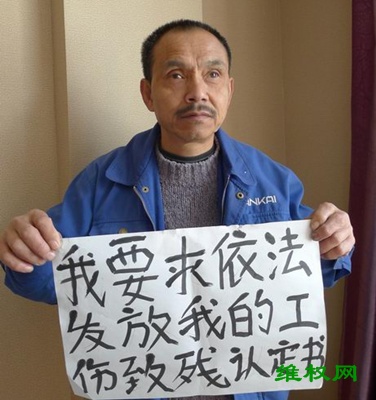 ANKAI
我要求依法
发放我的工
伤致残认定书
维权网